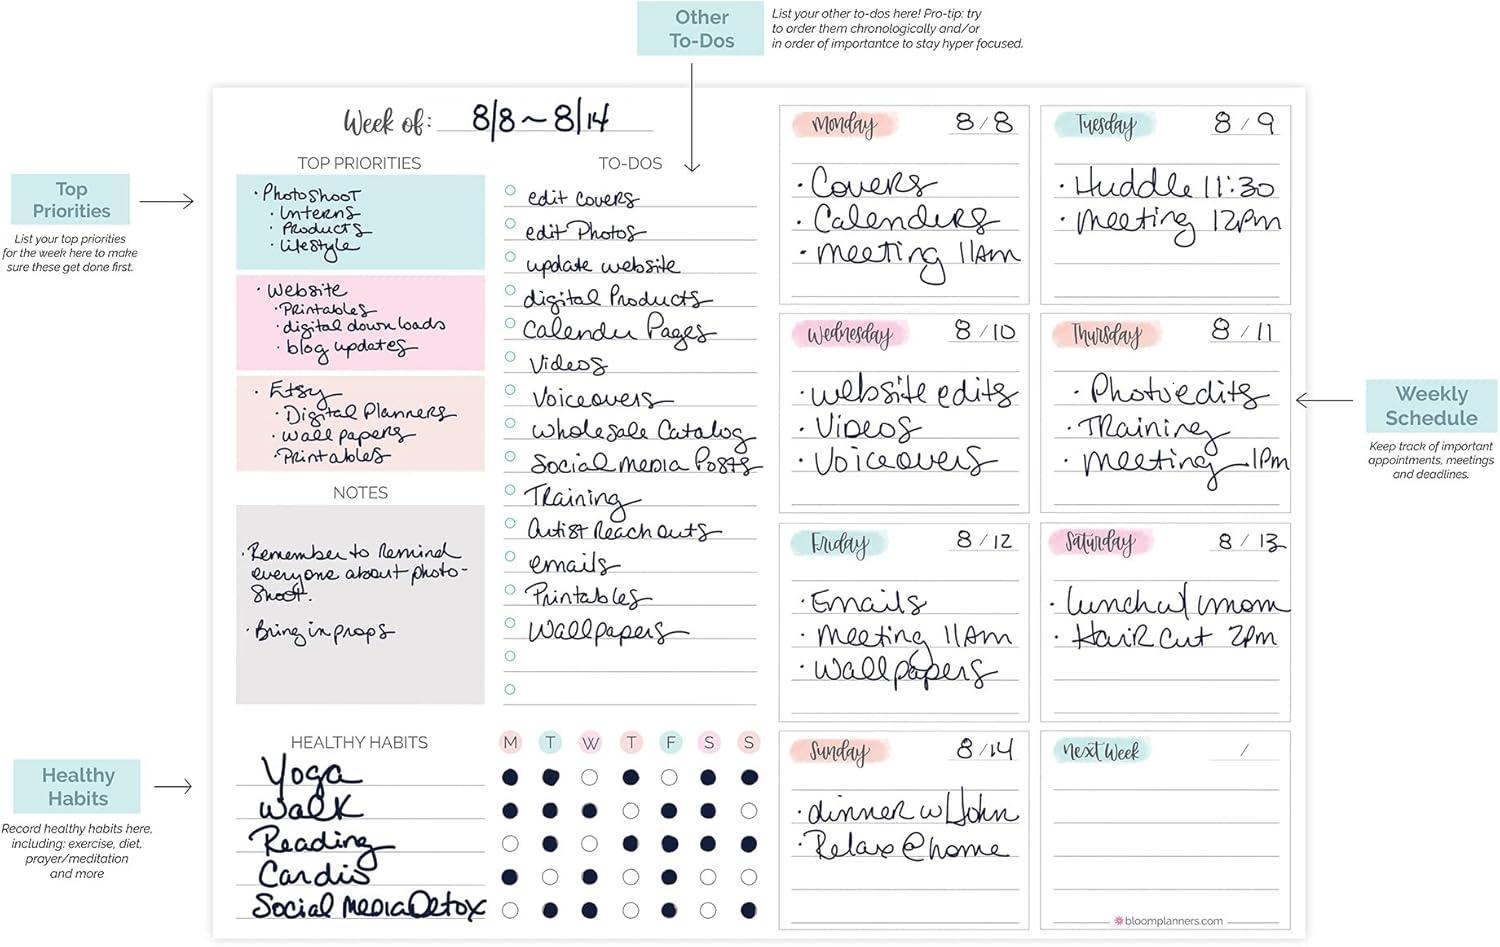 Other
To-Dos
List your other to-dos here! Pro-tip: try
to order them chronologically and/or
in order of importantce to stay hyper focused.
Top
Priorities
List your top priorities
for the week here to make
sure these get done first.
Healthy
Habits
Record healthy habits here,
including: exercise, diet,
prayer/meditation
and more
Week of: 8/8 ~ 8/14
TOP PRIORITIES
· Photoshoot
· Interns
· Products
· Lifestyle
· Website
· Printables
· digital downloads
· blog updates
· Etsy
· Digital Planners
· wallpapers
· Printables
NOTES
· Remember to Remind
everyone about photo-
shoot.
· Bring in props
TO-DOS
edit covers
edit Photos
update website
digital Products
Calender Pages
Videos
Voiceovers
wholesale Catalog
Social media Posts
Training
Artist Reach outs
emails
Printables
Wallpapers
HEALTHY HABITS M T W T F S S
Yoga
Walk
Reading
Cardio
Social Media Detox
Monday 8/8
· Covers
· Calenders
· meeting 11am
Tuesday 8/9
· Huddle 11:30
· meeting 12pm
Wednesday 8/10
· website edits
· Videos
· Voiceovers
Thursday 8/11
· Photo edits
· Training
· meeting 1pm
Friday 8/12
· Emails
· meeting 11am
· Wallpapers
Saturday 8/13
· lunch w/ mom
· Hair cut 2pm
Sunday 8/14
· dinner w/ John
· Relax @ home
Next Week /
bloomplanners.com
Weekly
Schedule
Keep track of important
appointments, meetings
and deadlines.